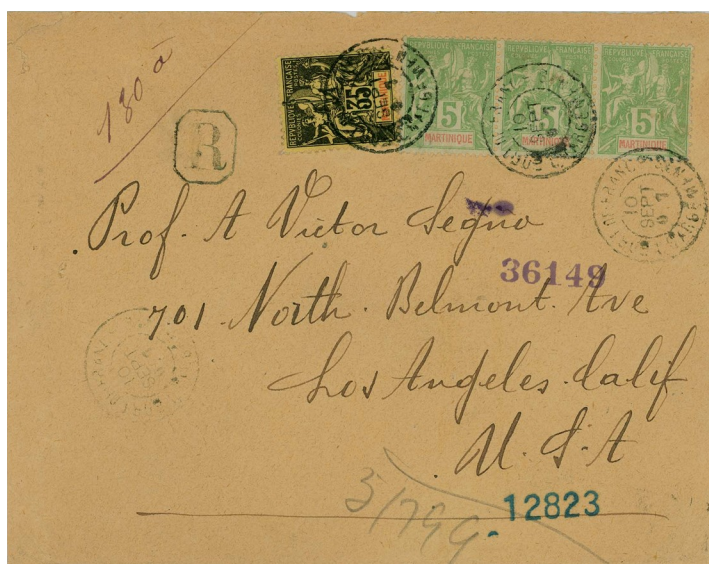 180 a
R
REPUBLIQUE FRANCAISE
35
REPUBLIQUE FRANCAISE
5
MARTINIQUE
REPUBLIQUE FRANCAISE
5
MARTINIQUE
REPUBLIQUE FRANCAISE
5
MARTINIQUE
10
SEPT
Prof. A Victor Segno
36149
701 North. Belmont. Ave
Los Angeles. Calif
U. S. A
5/799
12823